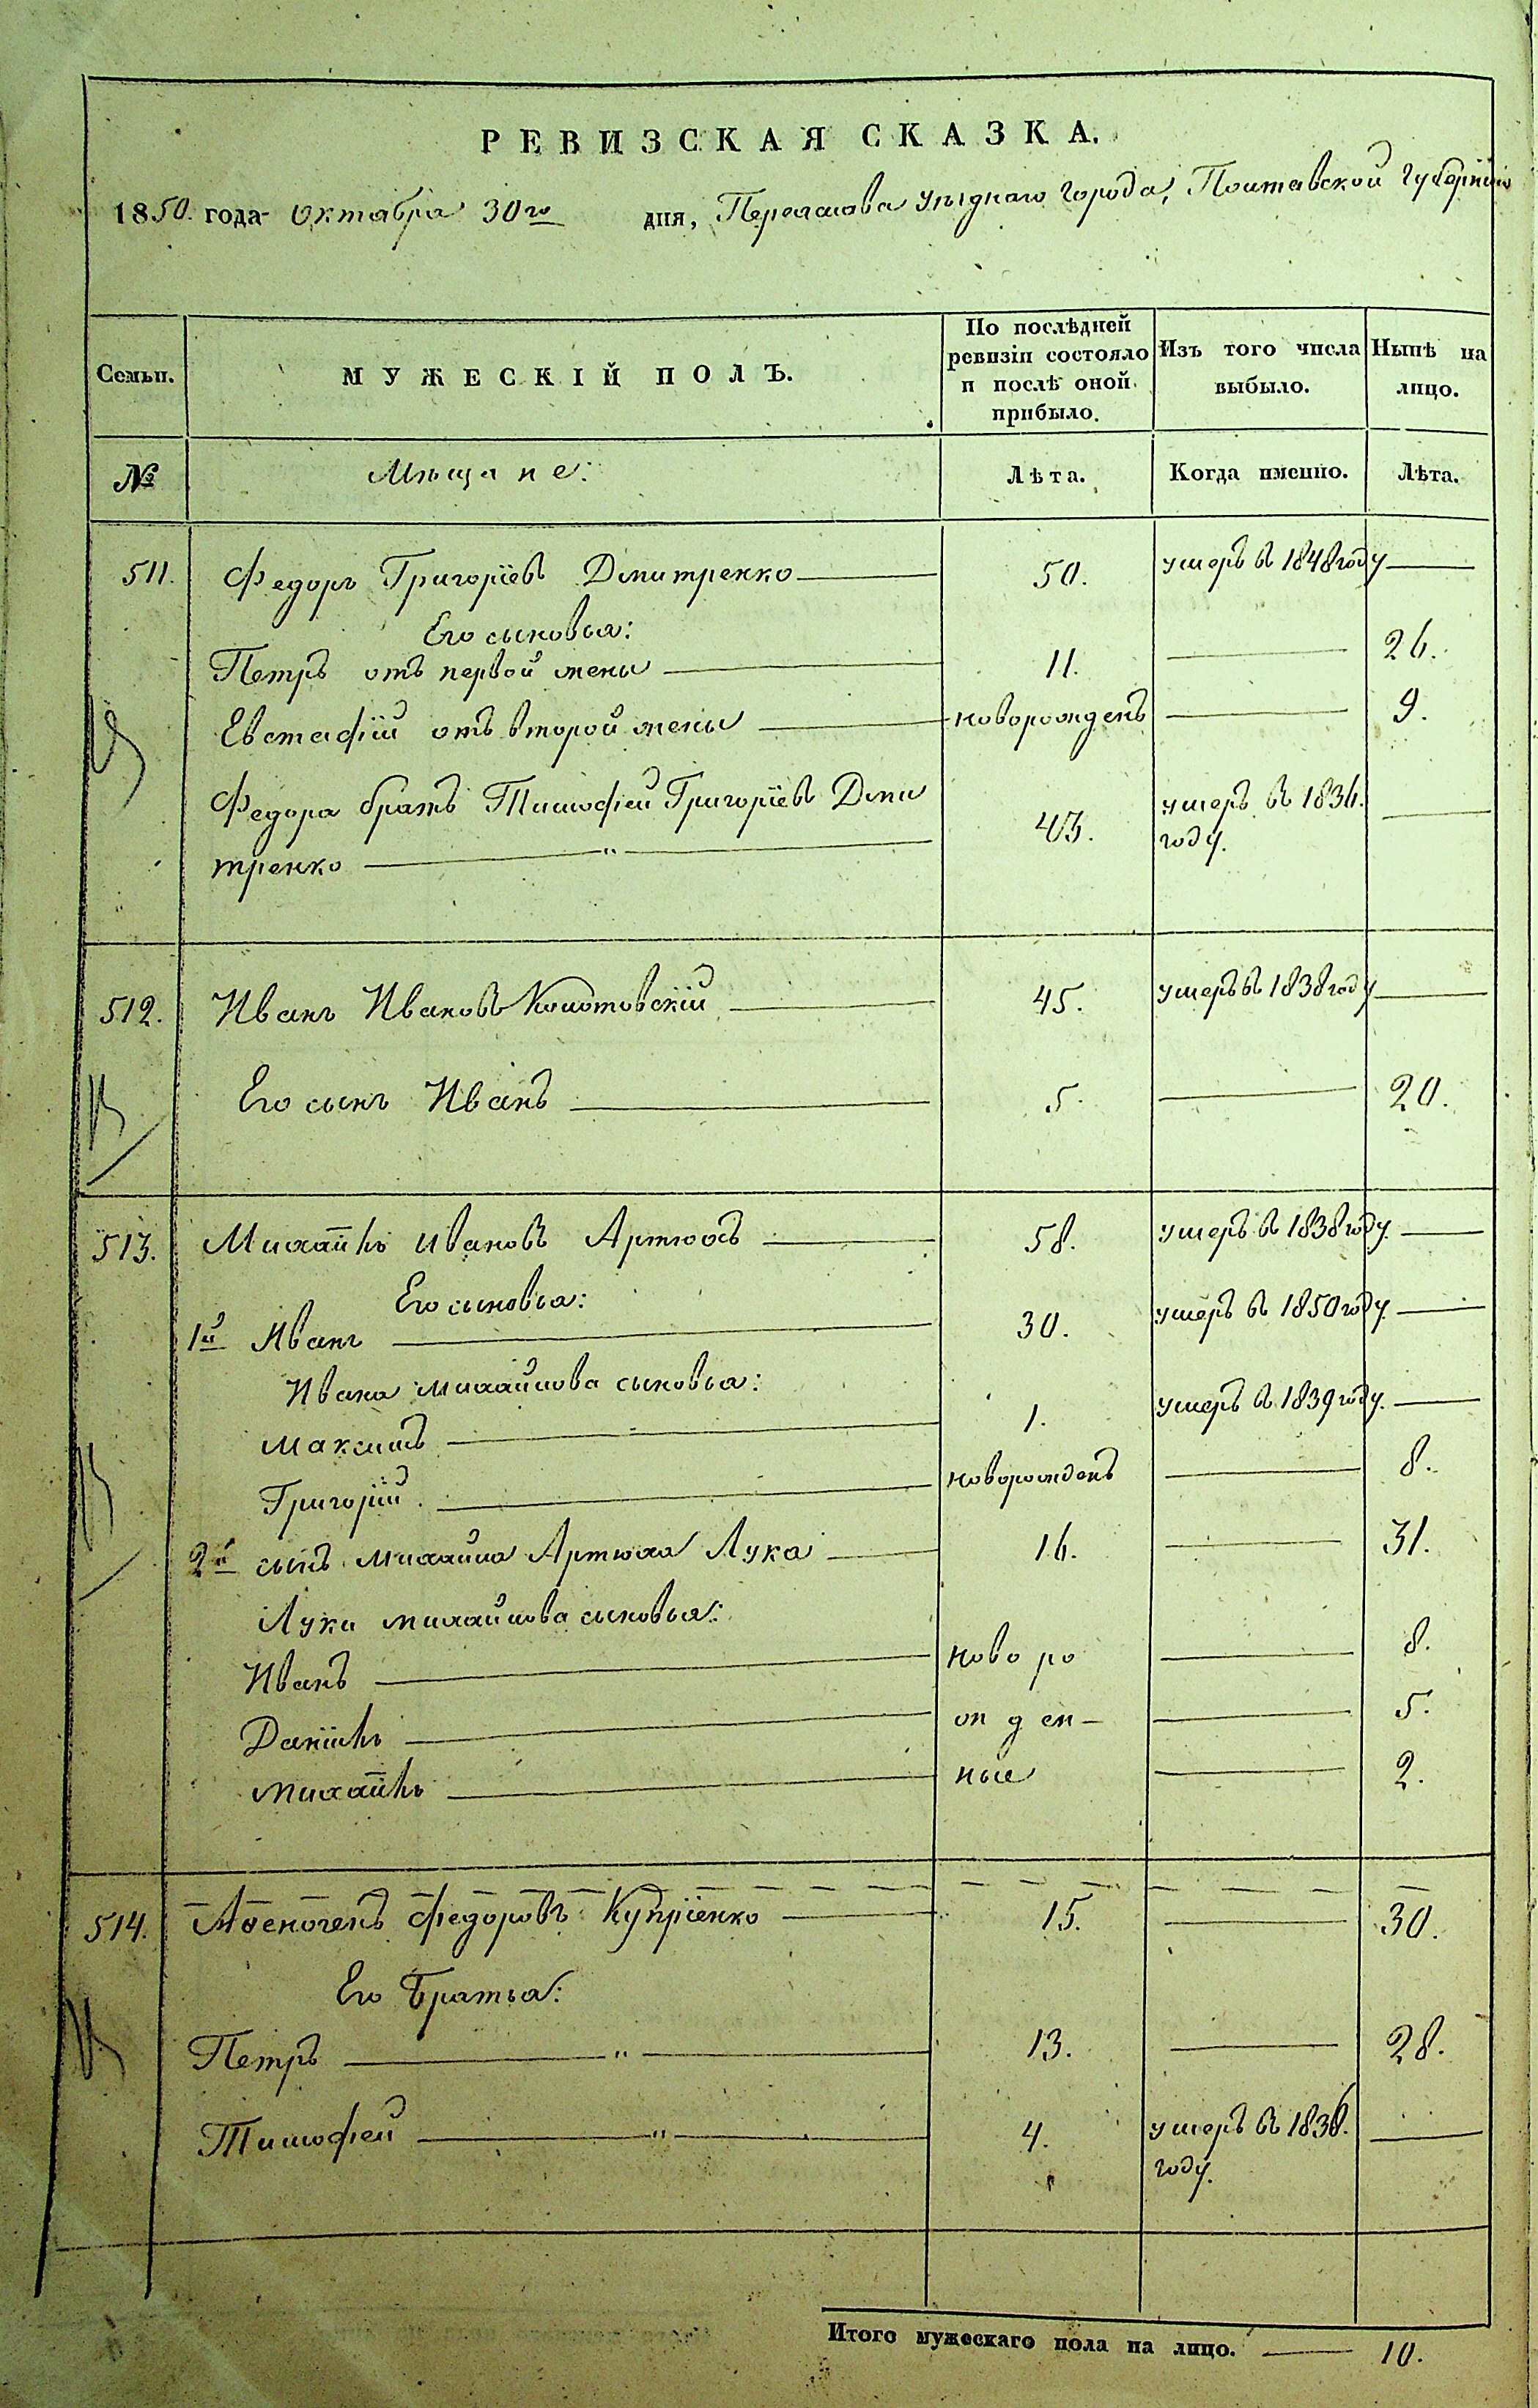 РЕВИЗСКАЯ СКАЗКА.
1850. года октября 30го дня, Переяслова уѣзднаго города, Полтавской губерніи
Семьи. МУЖЕСКІЙ ПОЛЪ. По послѣдней ревизіи состояло и послѣ оной прибыло. Изъ того числа выбыло. Нынѣ на лицо.
№ Мѣщане: Лѣта. Когда именно. Лѣта.
511. Федоръ Григоріевъ Дмитренко 50. умеръ въ 1848 году
Его сыновья:
Петръ отъ первой жены 11. 26.
Евстафій отъ второй жены новорожденъ 9.
Федора братъ Тимофей Григоріевъ Дми
тренко " 43. умеръ въ 1836. году.
512. Иванъ Ивановъ Колотовскій 45. умеръ въ 1838 году
Его сынъ Иванъ 5. 20.
513. Михайлъ Ивановъ Артюхъ 58. умеръ въ 1838 году.
Его сыновья:
1й Иванъ 30. умеръ въ 1850 году.
Ивана Михайлова сыновья:
Максимъ 1. умеръ въ 1839 году.
Григорій новорожденъ 8.
2й сынъ Михайла Артюха Лука 16. 31.
Луки Михайлова сыновья:
Иванъ ново ро 8.
Даніилъ жден- 5.
Михайлъ ные 2.
514. Афеногенъ Федоровъ Купріенко 15. 30.
Его братья:
Петръ " 13. 28.
Тимофей " 4. умеръ въ 1838. году.
Итого мужескаго пола на лицо. 10.